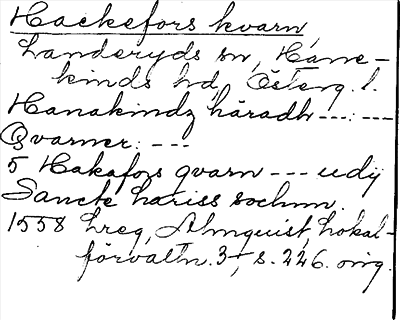 Hackefors kvarn,
Landeryds sn, Hane-
kinds hd, Österg. l.
Hanakindz häradh ---:---
Qvarner: ---
5 Hakafors qvarn --- udij
Sancte lariss sochnn.
1558 Lreg, Almquist, Lokal-
förvaltn. 3, s. 226. orig.